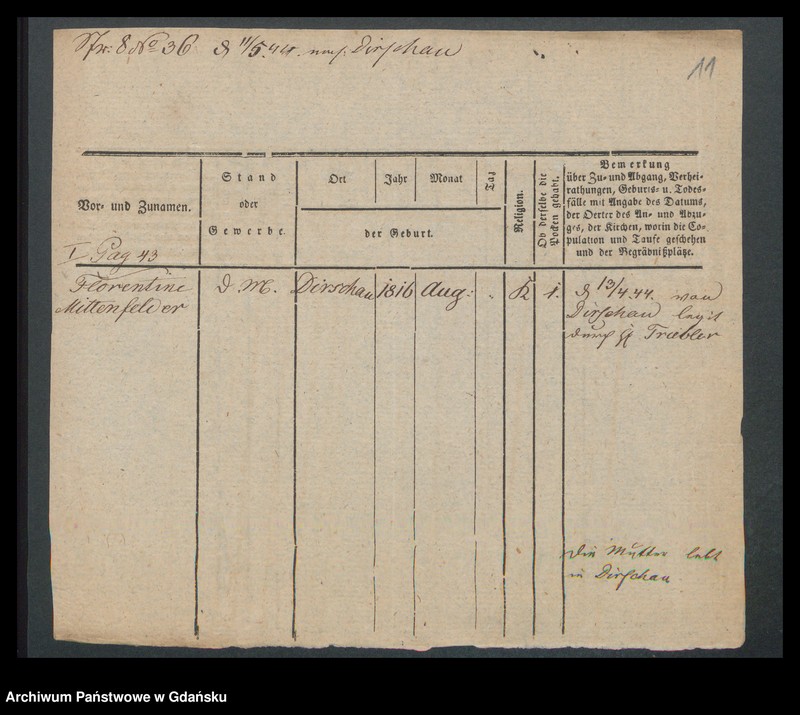 8 No 36 d 11/5.44. nach Dirschau
11
Vor- und Zunamen.
Stand
oder
Gewerbe.
Ort
Jahr
Monat
Tag
der Geburt.
Religion.
Ob derselbe die
Pocken gehabt.
Bemerkung
über Zu- und Abgang, Verhei-
rathungen, Geburts- u. Todes-
fälle mit Angabe des Datums,
der Oerter des An- und Abzu-
ges, der Kirchen, worin die Co-
pulation und Taufe geschehen
und der Begräbnißplätze.
I Pag 43
Florentine
Mittenfelder
D. M.
Dirschau
1816
Aug:
K
1.
d 13/4.44. von
Dirschau legit
durch
die Mutter lebt
in Dirschau
Archiwum Państwowe w Gdańsku